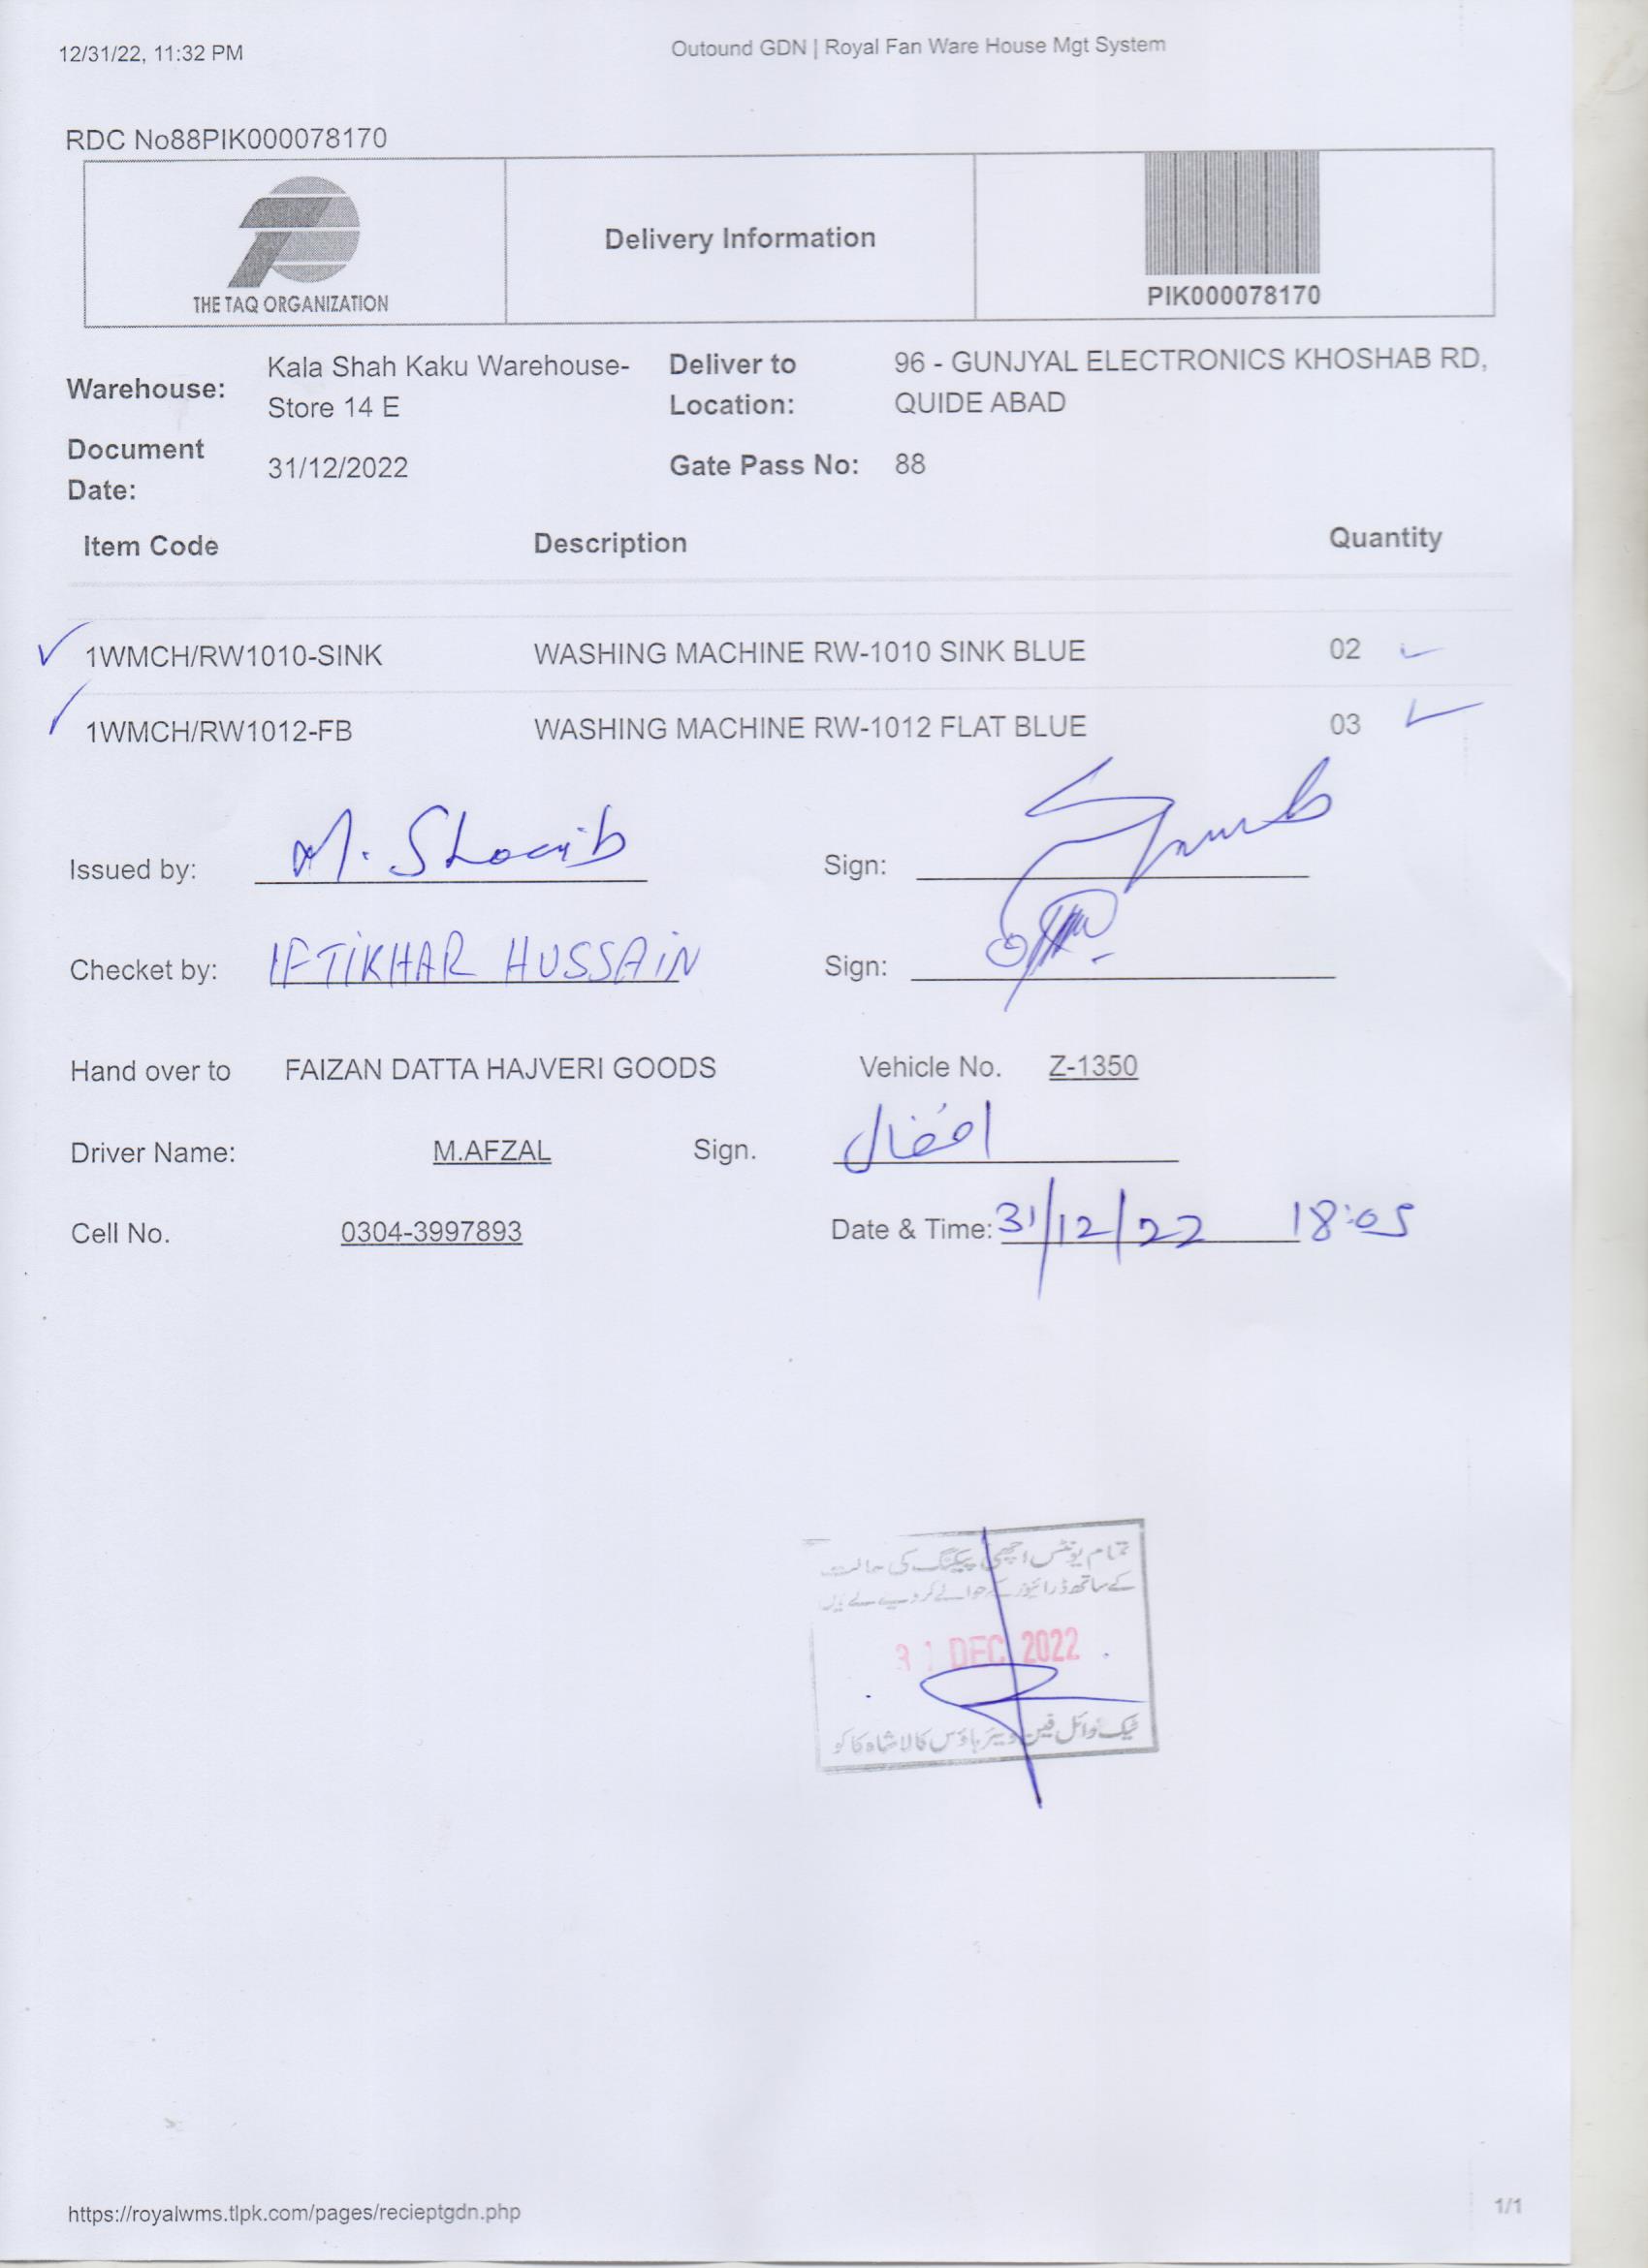 12/31/22, 11:32 PM
Outound GDN | Royal Fan Ware House Mgt System
RDC No88PIK000078170
THE TAQ ORGANIZATION
Delivery Information
PIK000078170
Warehouse: Kala Shah Kaku Warehouse-Store 14 E
Deliver to Location: 96 - GUNJYAL ELECTRONICS KHOSHAB RD, QUIDE ABAD
Document Date: 31/12/2022
Gate Pass No: 88
Item Code Description Quantity
1WMCH/RW1010-SINK WASHING MACHINE RW-1010 SINK BLUE 02
1WMCH/RW1012-FB WASHING MACHINE RW-1012 FLAT BLUE 03
Issued by: M. Shoaib Sign:
Checket by: IFTIKHAR HUSSAIN Sign:
Hand over to FAIZAN DATTA HAJVERI GOODS Vehicle No. Z-1350
Driver Name: M.AFZAL Sign. افضال
Cell No. 0304-3997893 Date & Time: 31/12/22 18:05
تمام یونٹس اچھی پیکنگ کی حالت
کے ساتھ ڈرائیور کے حوالے کر دیے گئے ہیں
31 DEC 2022
فین ویئر ہاؤس کالا شاہ کاکو
https://royalwms.tlpk.com/pages/recieptgdn.php
1/1